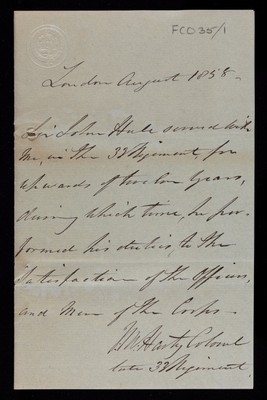 FCO35/1
London August 1858 -
John Hale served with
me, in the 33 Regiment, for
upwards of twelve Years,
during which time, he per-
formed his duties, to the
Satisfaction of the Officers,
and Men of the Corps -
Harty Colonel
late 33 Regiment